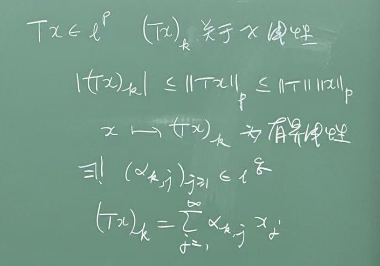 Tx ∈ l^p (Tx)_k 关于 x 线性
|(Tx)_k| ≤ ||Tx||_p ≤ ||T|| ||x||_p
x ⟼ (Tx)_k 为有界线性
∃! (α_{k,j})_{j≥1} ∈ l^q
(Tx)_k = ∑_{j=1}^∞ α_{k,j} x_j